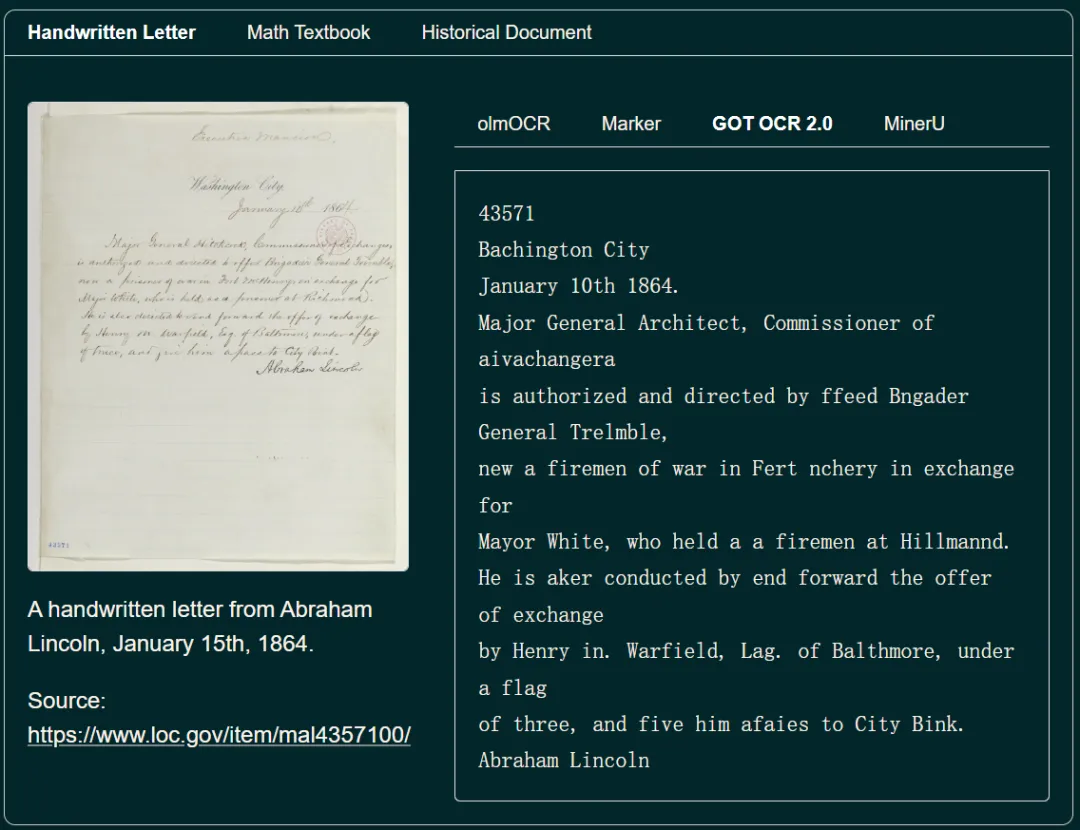 Handwritten Letter Math Textbook Historical Document
Executive Mansion,
Washington City,
January 15th 1864
Major General Hitchcock, Commissioner of Exchanges,
is authorized and directed to offer Brigadier General Trimble,
now a prisoner of war in Fort McHenry, in exchange for
Major White, who is held as a prisoner at Richmond.
He is also directed to send forward the offer of exchange
by Henry M. Warfield, Esq. of Baltimore, under a flag
of truce, and give him a pass to City Point.
Abraham Lincoln
43571
A handwritten letter from Abraham
Lincoln, January 15th, 1864.
Source:
https://www.loc.gov/item/mal4357100/
olmOCR Marker GOT OCR 2.0 MinerU
43571
Bachington City
January 10th 1864.
Major General Architect, Commissioner of
aivachangera
is authorized and directed by ffeed Bngader
General Trelmble,
new a firemen of war in Fert nchery in exchange
for
Mayor White, who held a a firemen at Hillmannd.
He is aker conducted by end forward the offer
of exchange
by Henry in. Warfield, Lag. of Balthmore, under
a flag
of three, and five him afaies to City Bink.
Abraham Lincoln